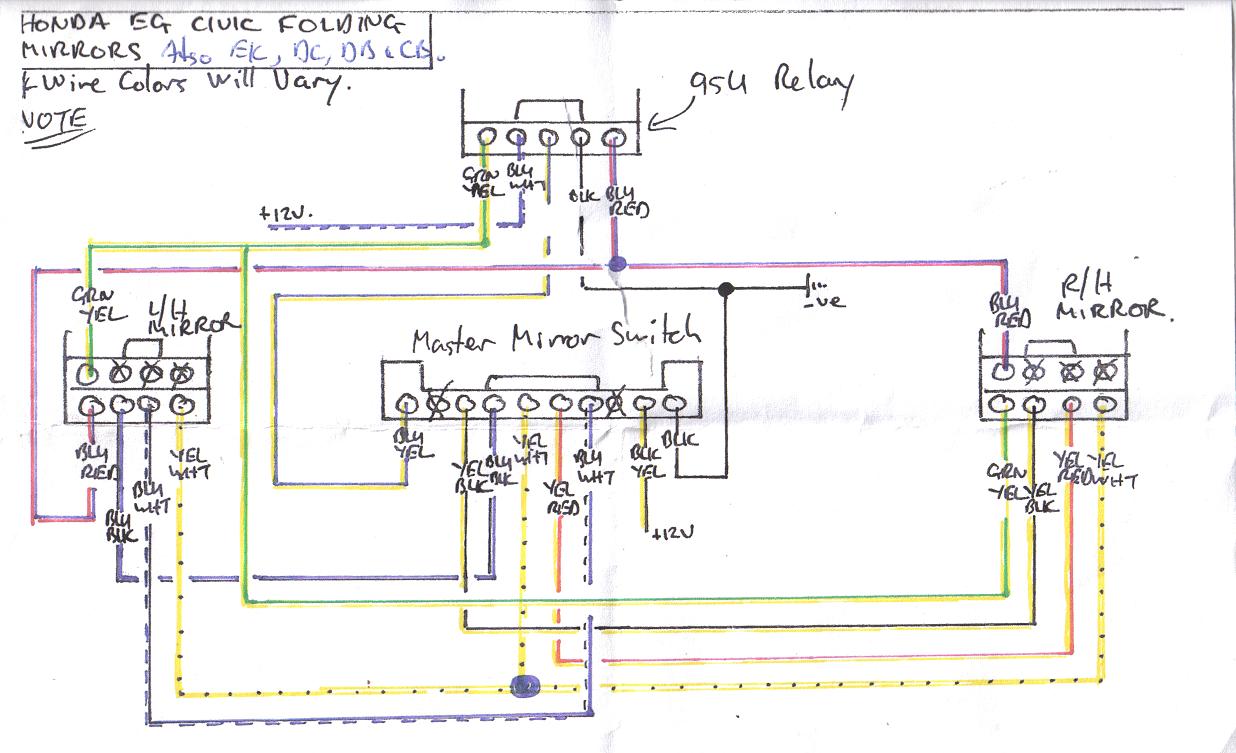 HONDA EG CIVIC FOLDING
MIRRORS Also EK, DC, DB & CB.
& Wire Colors Will Vary.
NOTE
954 Relay
GRN
YEL
BLU
WHT
BLK
BLU
RED
+12V.
-ve
GRN
YEL
L/H
MIRROR
Master Mirror Switch
BLU
RED
R/H
MIRROR.
BLU
RED
BLU
BLK
BLU
WHT
YEL
WHT
BLU
YEL
YEL
BLK
BLU
BLK
YEL
WHT
YEL
RED
BLU
WHT
BLK
YEL
BLK
+12V
GRN
YEL
YEL
BLK
YEL
RED
YEL
WHT